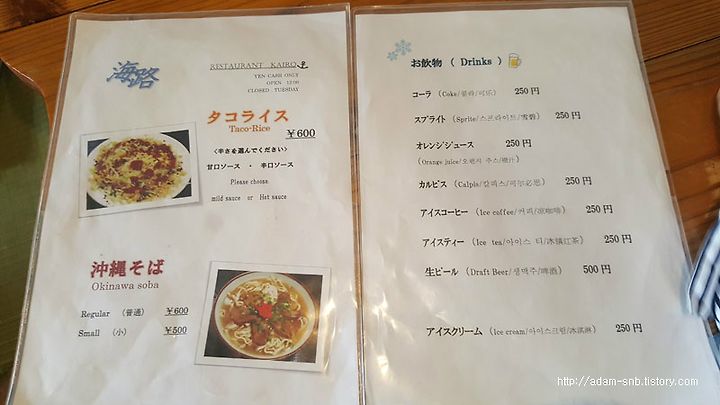 海路
RESTAURANT KAIRO
YEN CASH ONLY
OPEN 12:00
CLOSED TUESDAY
タコライス
Taco-Rice
¥600
<辛さを選んでください>
甘口ソース ・ 辛口ソース
Please choose
mild sauce or Hot sauce
沖縄そば
Okinawa soba
Regular (普通) ¥600
Small (小) ¥500
お飲物 ( Drinks )
コーラ (Coke/콜라/可乐) 250円
スプライト (Sprite/스프라이트/雪碧) 250円
オレンジジュース 250円
(Orange juice/오렌지 주스/橙汁)
カルピス (Calpis/칼피스/可尔必思) 250円
アイスコーヒー (Ice coffee/커피/凉咖啡) 250円
アイスティー (Ice tea/아이스 티/冰镇红茶) 250円
生ビール (Draft Beer/생맥주/啤酒) 500円
アイスクリーム (Ice cream/아이스크림/冰淇淋) 250円
http://adam-snb.tistory.com